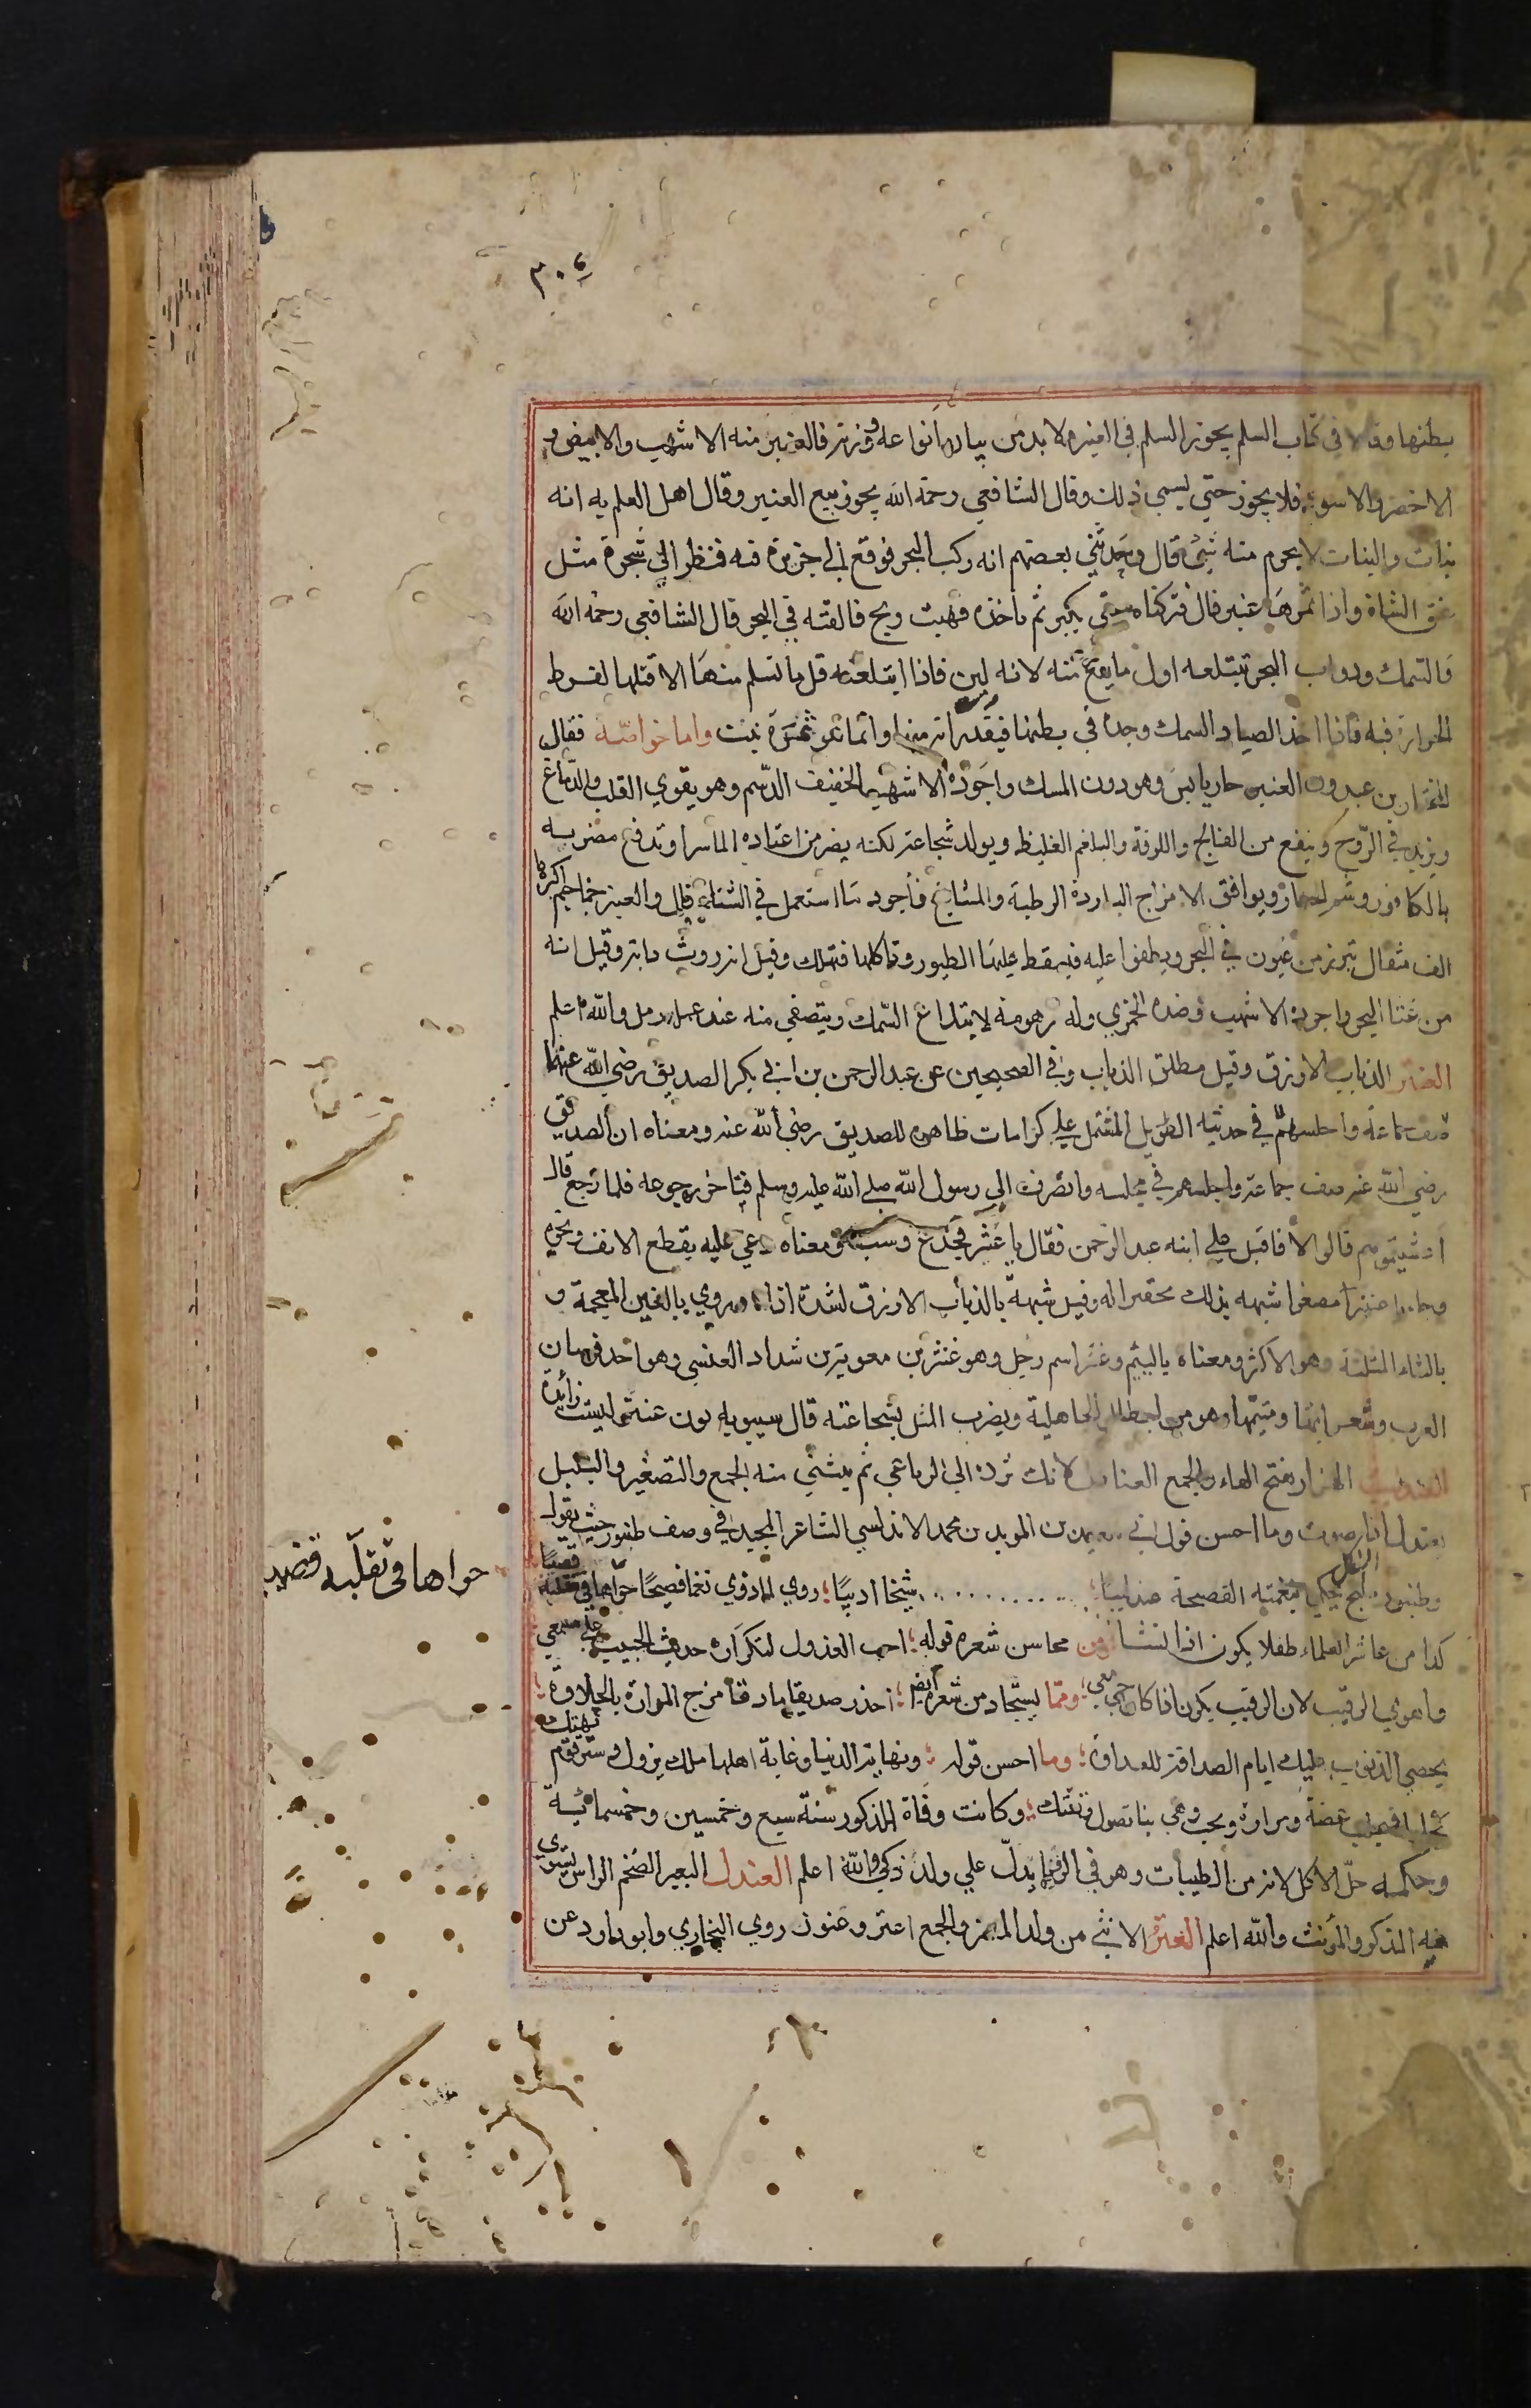 ٣٠٤
بطنها وقال في كتاب السلم يجوز السلم في العنبر ولا بد من بيان انواعه ووزنه فالعنبر منه الاشهب والابيض و
الاخضر والاسود فلا يجوز حتي يسمي ذلك وقال الشافعي رحمة الله يجوز بيع العنبر وقال اهل العلم به انه
نبات والنبات لا يحرم منه شئ قال وحدثني بعضهم انه ركب البحر فوقع الي جزيرة فيه فنظر الي شجرة مثل
عنق الشاة واذا ثمرها عنبر قال فتركناه حتي يكبر ثم ناخذه فهبت ريح فالقته في البحر قال الشافعي رحمه الله
والسمك ودواب البحر تبتلعه اول ما يقع منه لانه لين فاذا ابتلعته قل ما تسلم منها الا قتلها لفرط
الحرارة فيه فاذا اخذ الصياد السمك وجده في بطنها فيقدر انه منها وانما هو ثمرة نبت واما خواصه فقال
المختار بن عبدون العنبر حار يابس وهو دون المسك واجوده الاشهب الخفيف الدسم وهو يقوي القلب والدماغ
ويزيد في الروح وينفع من الفالج واللوقة والبلغم الغليظ ويولد شجاعة لكنه يضر من اعتاده الماسرا وتدفع مضرته
بالكافور وشم الخيار ويوافق الامزاج الباردة الرطبة والمشايخ فاجود ما استعمل في الشتاء قال والعنبر جماجم اكبرها
الف مثقال تبرز من عيون في البحر ويطفوا عليه فيسقط عليها الطيور وتاكلها فتهلك وقيل انه روث دابة وقيل انه
من غثا البحر واجوده الاشهب وضده الخمري وله زهومة لابتلاع السمك ويتصفي منه عند عمله رمل والله اعلم
العنتر الذباب الازرق وقيل مطلق الذباب وفي الصحيحين عن عبد الرحمن بن ابي بكر الصديق رضي الله عنهما
ضيف جماعة واجلسهم في حديثه الطويل المشتمل علي كرامات ظاهرة للصديق رضي الله عنه ومعناه ان الصديق
رضي الله عنه ضيف جماعة واجلسهم في مجلسه وانصرف الي رسول الله صلي الله عليه وسلم فتاخر رجوعه فلما رجع قال
اعشيتموهم قالوا لا فاقبل علي ابنه عبد الرحمن فقال يا عنتر فجدع وسب ومعناه دعي عليه بقطع الانف ونحوه
وجاء يا عنتر مصغرا شبهه بذلك تحقيرا له وقيل شبهه بالذباب الازرق لشدة اذاه وروي بالغين المعجمة و
بالثاء المثلثة وهو الاكثر ومعناه يا لئيم وعنتر اسم رجل وهو عنتر بن معوية بن شداد العنسي وهو احد فرسان
العرب وشعرائها ومتيمها وهو من ابطال الجاهلية ويضرب المثل بشجاعته قال سيبويه نون عنتر ليست زائدة
العندليب الهزار بفتح الهاء والجمع العنادل لانك ترده الي الرباعي ثم يبنى منه الجمع والتصغير والبلبل
يعندل اذا صوت وما احسن قول ابي سعيد بن المويد بن محمد الاندلسي الشاعر المجيد في وصف طنبور حيث يقول
وطنبور مليح الشكل يحكي بنغمته الفصيحة عندليبا ؛ شيخا اديبا ؛ روي لما ذوي نغما فصيحا حواها في تقلبه قضيبا
كذا من عاشر العلماء طفلا يكون اذا انتشا ومن محاسن شعره قوله ؛ احب العذول لتكراره حديث الحبيب علي مسمعي
واهوي الرقيب لان الرقيب يكون اذا كان حبي معي ؛ ومما يستجاد من شعره ايضا ؛ احذر صديقا ماذقا مزج المرارة بالحلاوة ؛
يحصي الذنوب عليك ايام الصداقة للعداوة ؛ وما احسن قوله ؛ ونهاية الدنيا وغاية اهلها ملك يزول وستر قوم تهتك
وكانت وفاة المذكور سنة سبع وخمسين وخمسمائية
وحكمه حل الاكل لانه من الطيبات وهو في الرؤيا يدل علي ولد ذكي والله اعلم العندل البعير الضخم الراس يستوي
فيه المذكر والمؤنث والله اعلم العنز الانثي من ولد المعز والجمع اعنز وعنوز روي البخاري وابو داود عن
حواها في تقلبه قضيبا